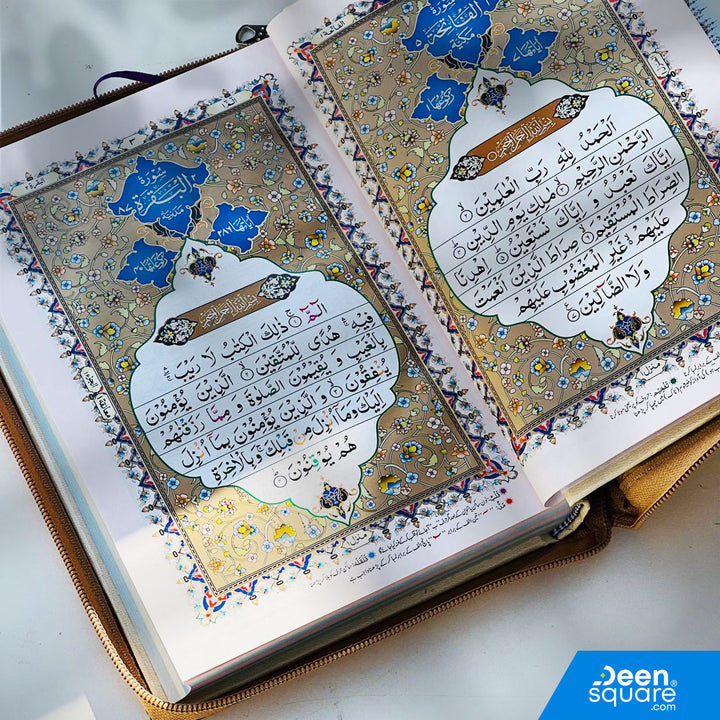 سُورَةُ
الْفَاتِحَةِ
مَكِّيَّةٌ
بِسْمِ اللّٰهِ الرَّحْمٰنِ الرَّحِيْمِ
اَلْحَمْدُ لِلّٰهِ رَبِّ الْعٰلَمِيْنَ
الرَّحْمٰنِ الرَّحِيْمِ مٰلِكِ يَوْمِ الدِّيْنِ
اِيَّاكَ نَعْبُدُ وَ اِيَّاكَ نَسْتَعِيْنُ اِهْدِنَا
الصِّرَاطَ الْمُسْتَقِيْمَ صِرَاطَ الَّذِيْنَ اَنْعَمْتَ
عَلَيْهِمْ غَيْرِ الْمَغْضُوْبِ عَلَيْهِمْ
وَ لَا الضَّآلِّيْنَ
سُورَةُ
الْبَقَرَةِ
مَدَنِيَّةٌ
بِسْمِ اللّٰهِ الرَّحْمٰنِ الرَّحِيْمِ
الٓمّٓ ذٰلِكَ الْكِتٰبُ لَا رَيْبَ
فِيْهِ هُدًى لِّلْمُتَّقِيْنَ الَّذِيْنَ يُؤْمِنُوْنَ
بِالْغَيْبِ وَ يُقِيْمُوْنَ الصَّلٰوةَ وَ مِمَّا رَزَقْنٰهُمْ
يُنْفِقُوْنَ وَ الَّذِيْنَ يُؤْمِنُوْنَ بِمَآ اُنْزِلَ
اِلَيْكَ وَمَآ اُنْزِلَ مِنْ قَبْلِكَ وَ بِالْاٰخِرَةِ
هُمْ يُوْقِنُوْنَ
Deen
square
.com